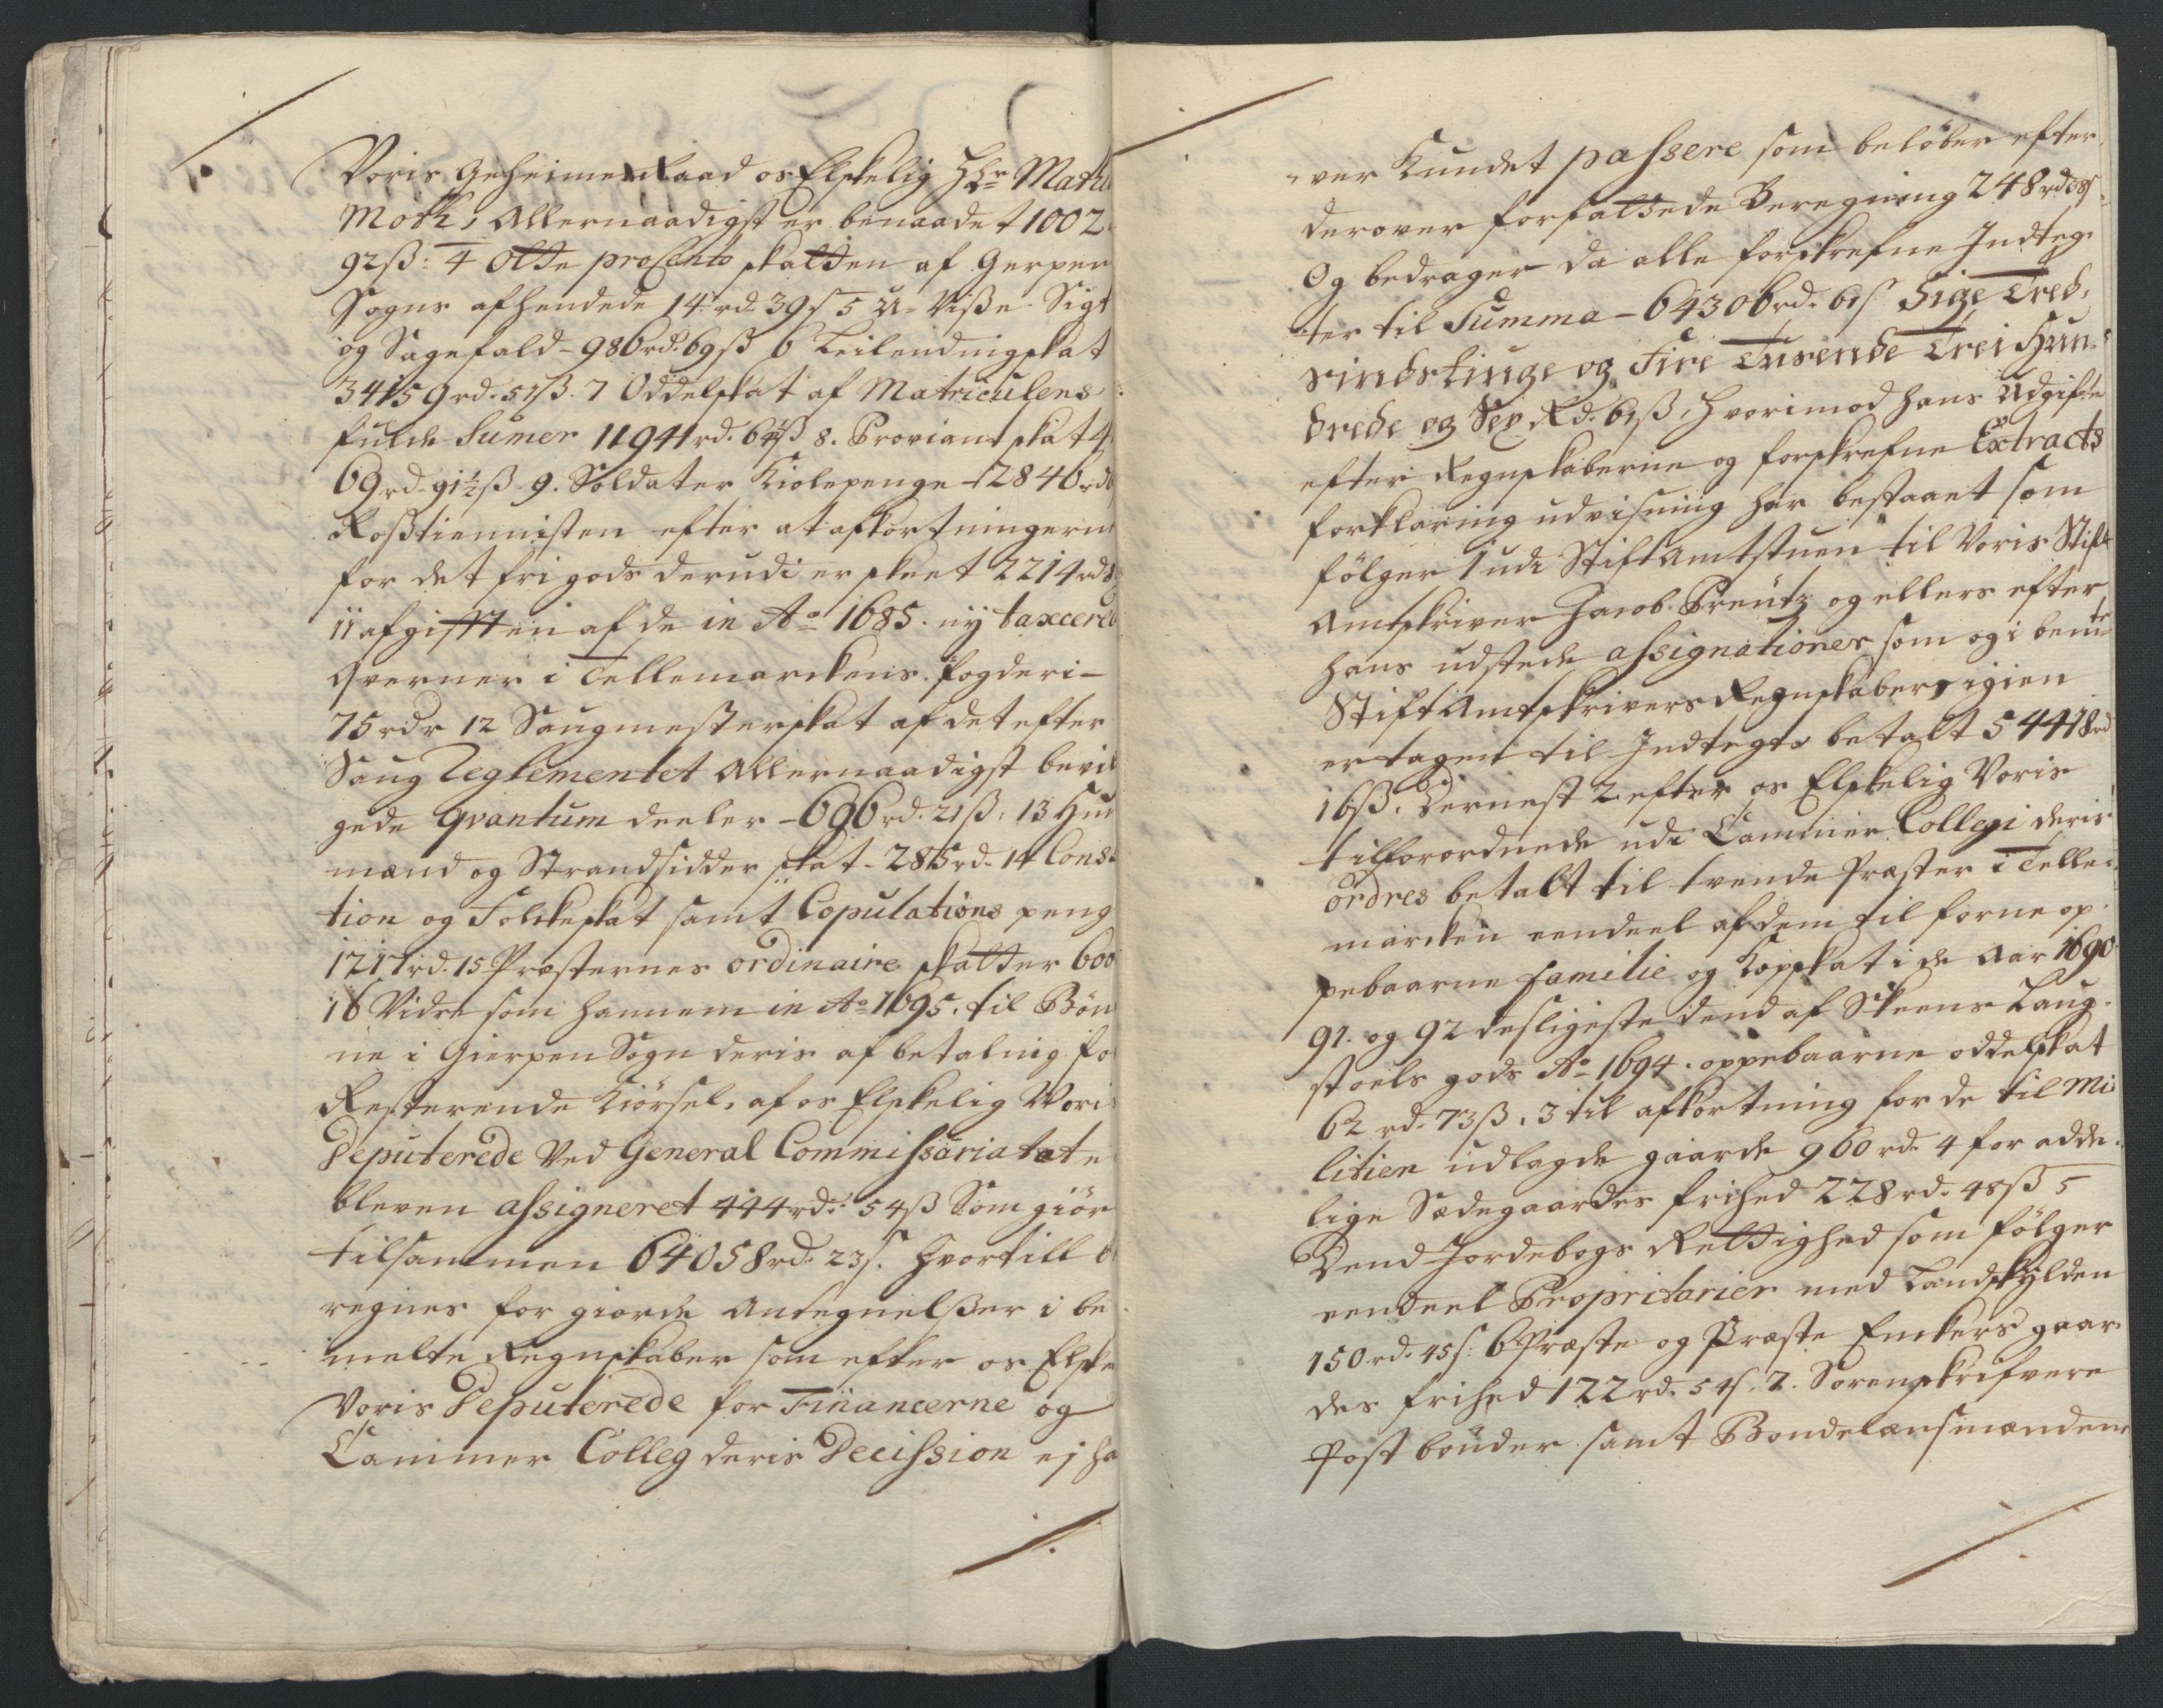 Voris Geheime Raad os Elskelig Hr Matt
Moth, Allernaadigst er benaadet 1002
92ß: 4 Otte procento skatten af Gerpen
Sogns afhendede 14 rd 39 s 5 U-Visse Sigt
og Sagefald - 986rd. 69ß 6 Leilendingskat
34159rd. 51ß. 7 Oddelskat af Matriculens
fulde Sumer 11941rd. 64ß 8. Proviant skat 4
69rd. 91½ß 9. Soldater Kiolepenge - 12840rd
Rosstiennisten efter at afkortningerne
for det fri gods derudi er skeet 2214rd
11 afgifften af de in Ao 1685. nÿ taxcere
Qverner i Tellemarckens fogderi -
75rdr 12 Saugmesterskat af det efter
Saug Reglementet Allernaadigst bevil
gede qvantum deeler - 696rd. 21ß. 13 Huu
mænd og Strandsidder skat - 285rd. 14 Cons
tion og Folckeskat samt Copulations peng
1217rd. 15 Præsternes ordinaire skatter 600
16 Vidre som hannem in Ao 1695. til Bøn
ne i Gierpen Sogn deris afbetalning fo
Resterende Kiörsel, af os Elskelig Vori
Deputerede Ved General Commissariatet
bleven assigneret 444rd. 54ß Som giör
tilsammen 64058rd. 23s. hvortill b
regnes for giorde Antegnelsser i be
melte Regnskaber som efter os Elske
Voris Deputerede for Financerne og
Cammer Colleg deris Decission ej ha
ver Kundet passere som beløber efter
derover forfattede Beregning 248rd 38s
Og bedrager da alle forskrefne Indteg
ter til Summa - 64306rd. 61s Sige Tred
sindstiuge og Fire Tusende Trei Hun
drede og Sex Rd. 61ß, hvorimod hans Udgifte
efter Regnskaberne og forskrefne Extracts
forklaring udvisning har bestaaet som
fölger 1 udi Stiftamtstuen til Voris Stift
Amtskriver Jacob Preutz og ellers efter
hans udstede assignationer som og i bemte
Stift Amtskrivers Regnskaber igien
er tagen til Indtegt betalt 54418rd
16ß. Dernest 2 efter os Elskelig Voris
tilforordnede udi Cammer Collegi deris
ordres betalt til tvende Præster i Telle
marcken eendeel af dem tilforne op
pebaarne familie og Kopskat i de Aar 1690
91. og 92 desligeste dend af Skeens Laug
stoels gods Ao 1694. oppebaarne oddelskat
62 rd. 73ß. 3 til afkortning for de til Mi
litien udlagde gaarde 960rd. 4 for adde
lige Sædegaardes frihed 228rd. 48ß 5
Dend Jordebogs Rettighed som fölger
eendeel Propritarier med Landskylden
150rd. 45s: 6 Præste og Præste Enkers gaar
des frihed 122rd. 54s. 7. Sorenskrifvere
Post bönder samt Bondelænsmændene